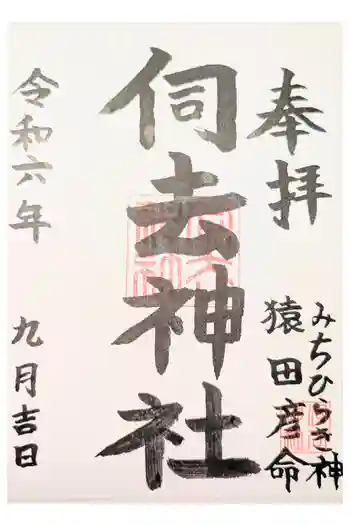 奉拝
みちひらき神
猿田彦命
伺去神社
令和六年
九月吉日